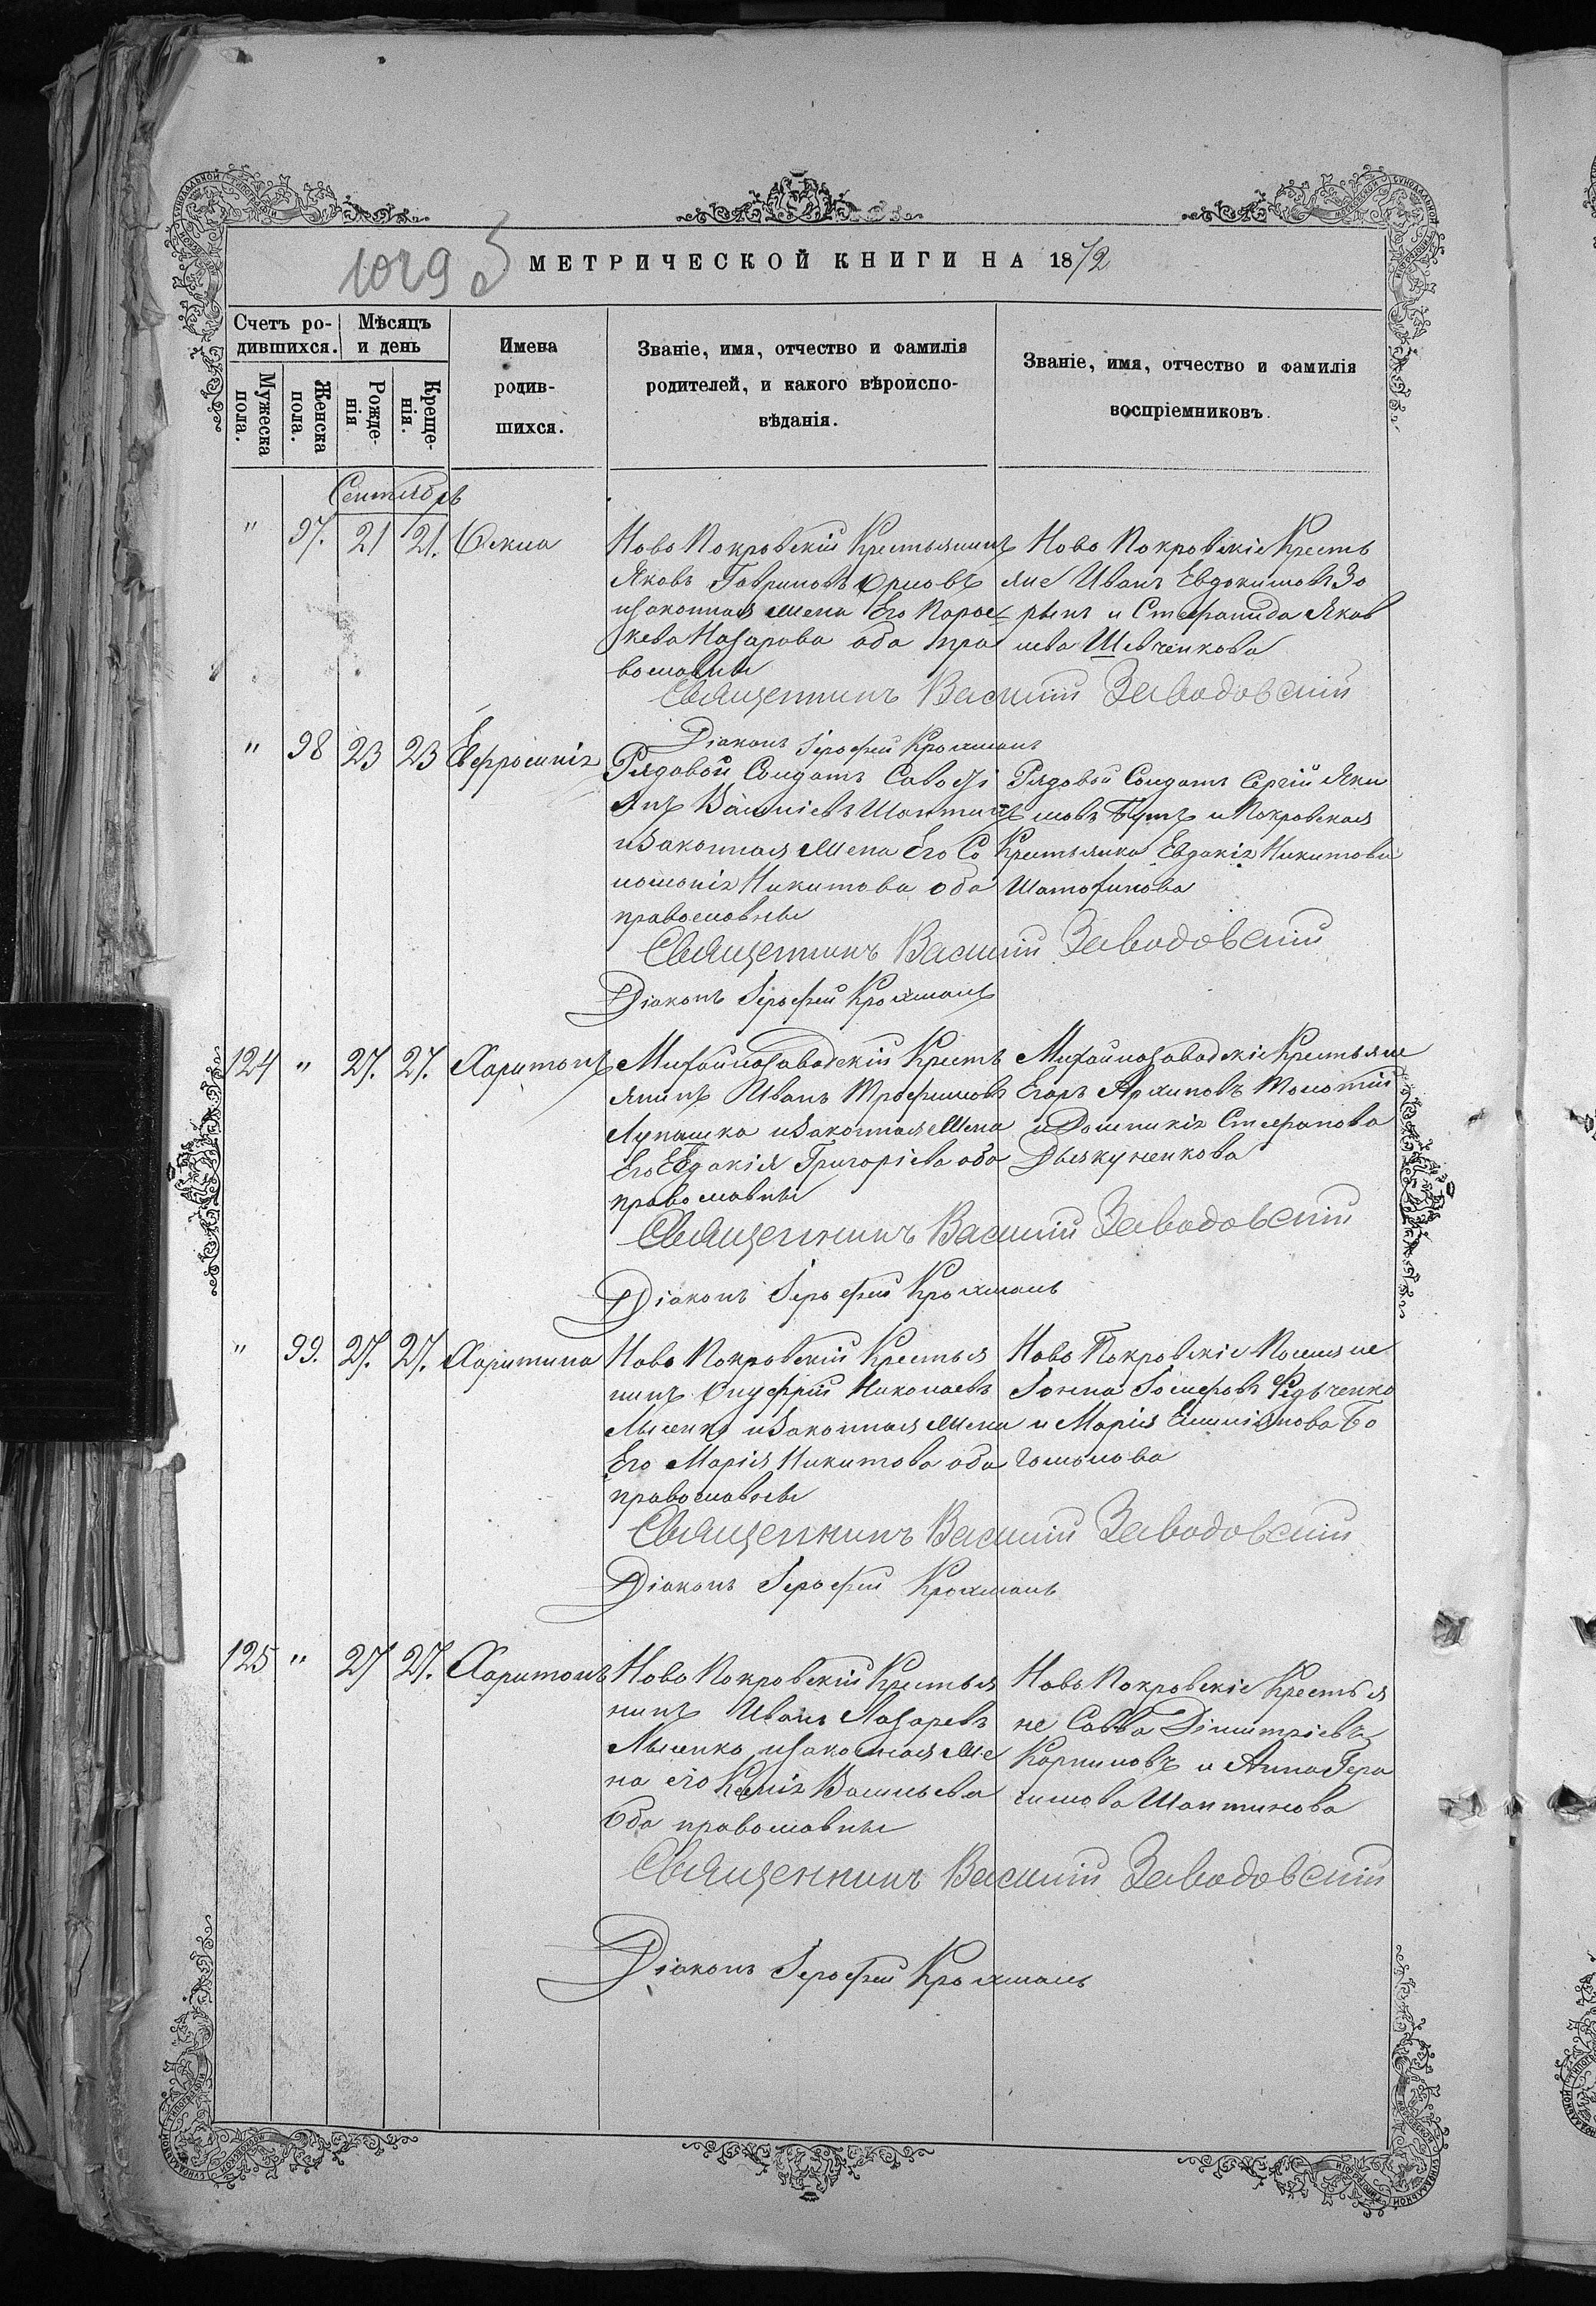 1029
МЕТРИЧЕСКОЙ КНИГИ НА 1872
Счетъ ро-
дившихся.
Мѣсяцъ
и день
Мужеска
пола.
Женска
пола.
Рожде-
нія
Креще-
нія.
Имена
родив-
шихся.
Званіе, имя, отчество и фамилія
родителей, и какого вѣроиспо-
вѣданія.
Званіе, имя, отчество и фамилія
воспріемниковъ.
Сентябрь
" 97. 21 21. Фекла
Ново Покровскій Крестьянинъ
Яковъ Гавриловъ Орловъ
изаконная жена Его Парас
кева Назарова оба пра
вославны
Ново Покровскіе Кресть
яне Иванъ Евдокимовъ Зо
ринъ и Стефанида Яков
лева Шевченкова
Священникъ Василій Заводовскій
Діаконъ Іерофей Крохмаль
" 98 23 23 Евфросинія
Рядовой Солдатъ Савастi
янъ Василіевъ
изаконная жена Его Со
ломонія Никитова оба
православны
Рядовой Солдатъ Сергій Яки
мовъ Бутъ и Покровская
Крестьянка Евдокія Никитова
Священникъ Василій Заводовскій
Діаконъ Іерофей Крохмаль
124 " 27. 27. Харитонъ
Михайлозаводскій Кресть
янинъ Иванъ Трофимовъ
Лупашка изаконная жена
Его Евдокія Григоріева оба
православны
Михайлозаводскіе Крестьяне
Егоръ Архиповъ Толотій
и Домникія Стефанова
Дьякуненкова
Священникъ Василій Заводовскій
Діаконъ Іерофей Крохмаль
" 99. 27. 27. Харитина
Ново Покровскій Крестья
нинъ Онуфрій Николаевъ
Лысенко изаконная жена
Его Марія Никитова оба
православны
Ново Покровскіе Поселяне
Іосифовъ Федьченко
и Марія Емиліянова Бо
гомолова
Священникъ Василій Заводовскій
Діаконъ Іерофей Крохмаль
125 " 27 27. Харитонъ
Ново Покровскій Крестья
нинъ Иванъ Лазаревъ
Лысенко изаконная же
на его Ксенія Васильева
оба православны
Ново Покровскіе Крестья
не Савва Димитріевъ
Карпиловъ и Анна Гера
симова Шаптикова
Священникъ Василій Заводовскій
Діаконъ Іерофей Крохмаль